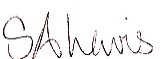 SA Lewis